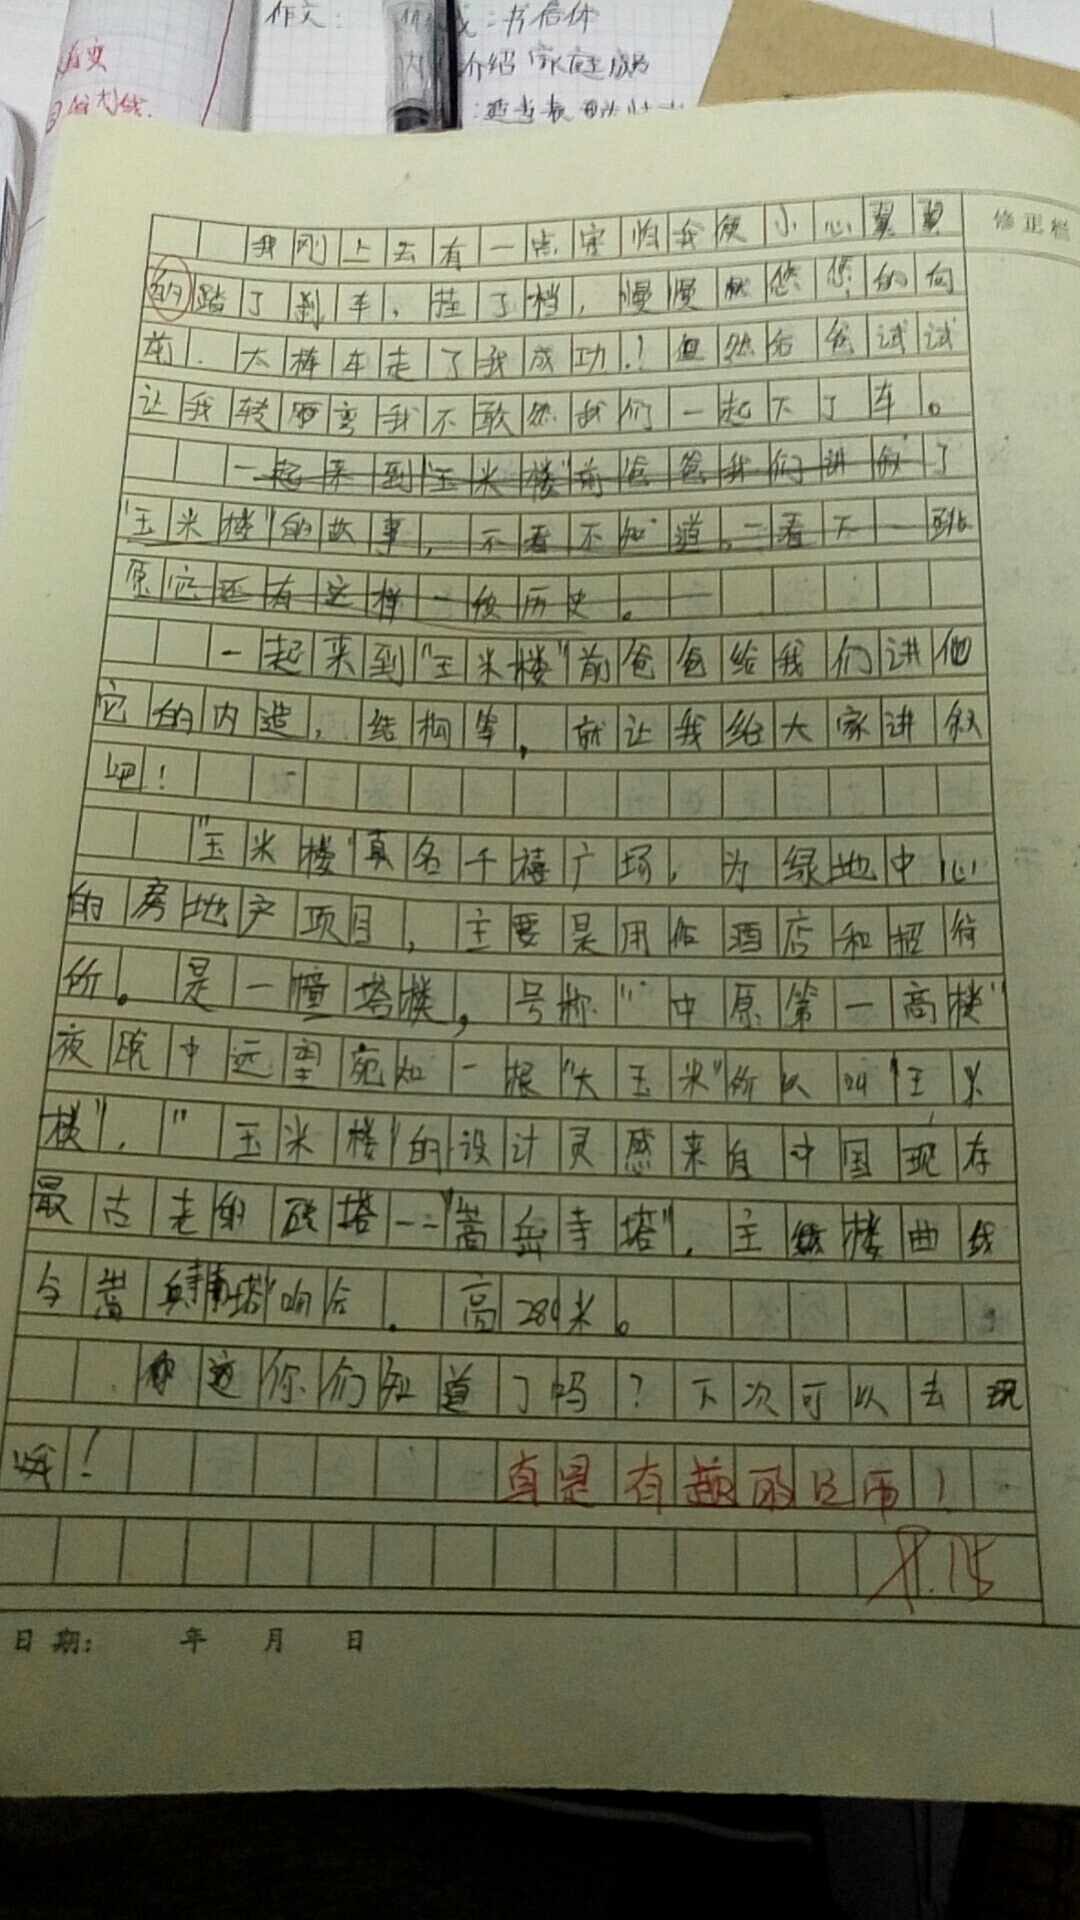 作文：
：书信体
介绍家庭成员
我刚上去有一点害怕我便小心翼翼
的踏了刹车，挂了档，慢慢悠悠的向
前.太棒车走了我成功!但然后爸试试
让我转弯我不敢然我们一起下了车。
一起来到"玉米楼"前爸爸我们讲叙了
"玉米楼"的故事，不看不知道，一看下一跳
原它还有这样一段历史。
一起来到"玉米楼"前爸爸给我们讲他
它的内造，结构等，就让我给大家讲叙
吧！
"玉米楼"真名千禧广场，为绿地中心
的房地产项目，主要是用作酒店和招待
所。是一幢塔楼，号称"中原第一高楼"
夜晚中远望宛如一根"大玉米"所以叫"玉米
楼"，"玉米楼"的设计灵感来自中国现存
最古老的砖塔——"嵩岳寺塔"，主楼曲线
与嵩岳寺塔响合.高280米。
这你们知道了吗？下次可以去玩
哦！
真是有趣的经历！
8.15
修正栏
日期： 年 月 日